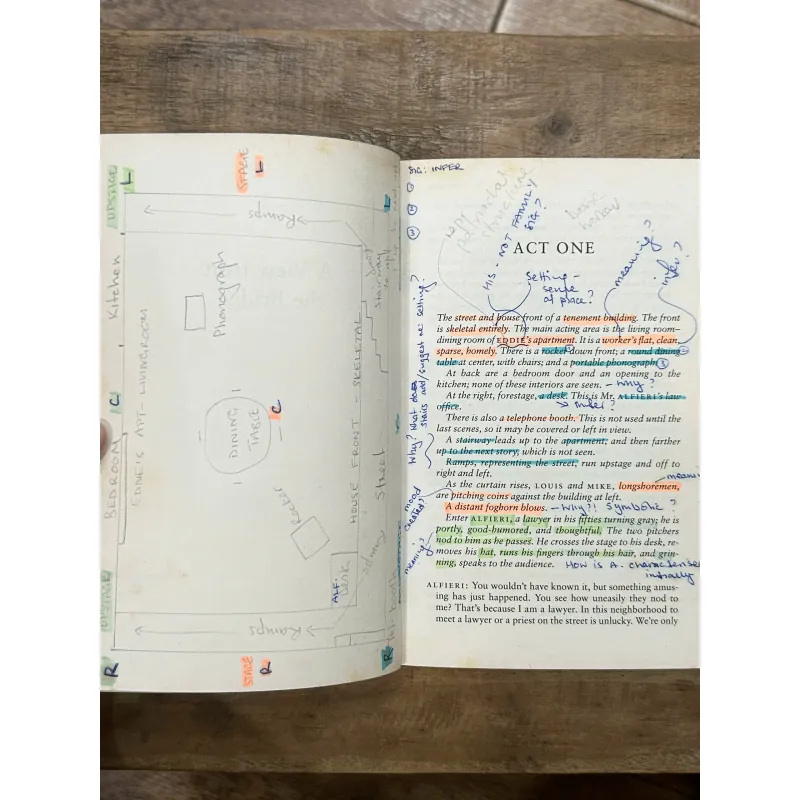 UPSTAGE L
STAGE L
L
Ramps
Kitchen
Phonograph
stairway
C
EDDIE'S APT - LIVINGROOM
DINING
TABLE
C
HOUSE FRONT - SKELETAL
Street
BEDROOM
Rocker
ALF.
Desk
Ramps
UPSTAGE
R
STAGE
R
R
SIG: INFER
①
②
③
HIS - NOT FAMILY
SIG?
meaning?
infer?
ACT ONE
Setting -
sense
of place?
The street and house front of a tenement building. The front
is skeletal entirely. The main acting area is the living room–
dining room of EDDIE's apartment. It is a worker's flat, clean,
sparse, homely. There is a rocker down front; a round dining
table at center, with chairs; and a portable phonograph.
At back are a bedroom door and an opening to the
kitchen; none of these interiors are seen. - Why?
At the right, forestage, a desk. This is Mr. ALFIERI's law
office.
There is also a telephone booth. This is not used until the
last scenes, so it may be covered or left in view.
A stairway leads up to the apartment, and then farther
up to the next story, which is not seen.
Ramps, representing the street, run upstage and off to
right and left.
As the curtain rises, LOUIS and MIKE, longshoremen,
are pitching coins against the building at left.
A distant foghorn blows. - Why?! Symbolic?
Enter ALFIERI, a lawyer in his fifties turning gray; he is
portly, good-humored, and thoughtful. The two pitchers
nod to him as he passes. He crosses the stage to his desk, re-
moves his hat, runs his fingers through his hair, and grin-
ning, speaks to the audience. HOW IS A. characterised
initially
ALFIERI: You wouldn't have known it, but something amus-
ing has just happened. You see how uneasily they nod to
me? That's because I am a lawyer. In this neighborhood to
meet a lawyer or a priest on the street is unlucky. We're only
Why? What does
stairs and/suggest re: setting?
mood
created?
meaning?